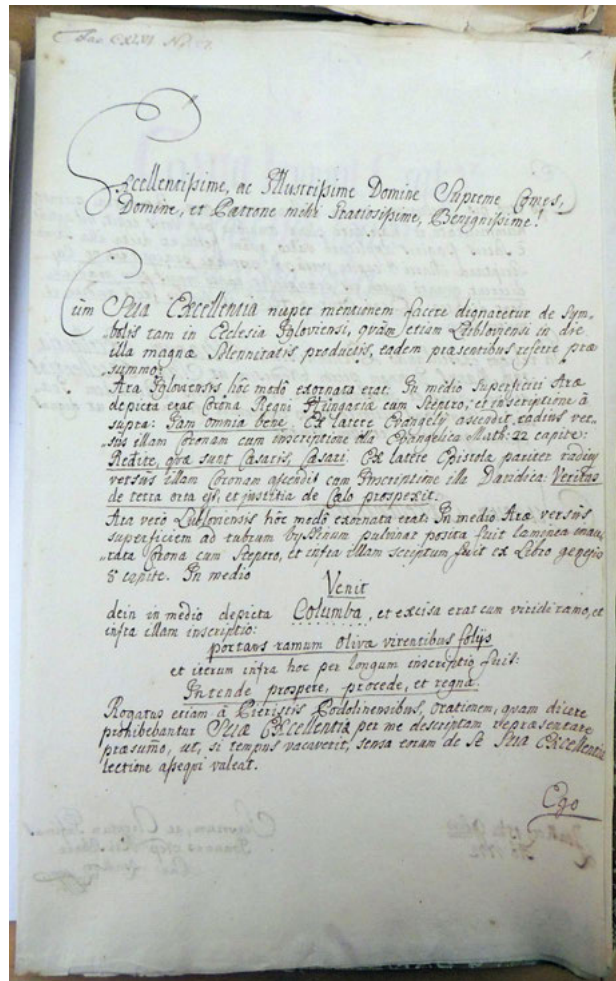 Fac. CXLVI. No. 57.
Excellentissime, ac Illustrissime Domine Supreme Comes,
Domine, et Patrone mihi Gratiosissime, Benignissime!
Cùm Sua Excellentia nuper mentionem facere dignaretur de Sym-
"bolis tam in Ecclesia Igloviensi, quàm etiam Lubloviensi in die
illa magnæ Solennitatis productis, eadem præsentibus referre præ
"summo:
Ara Igloviensis hôc modô exornata erat: In medio Superficiei Aræ
depicta erat Corona Regni Hungariæ cum Sceptro, et inscriptione à
supra: Jam omnia bene. Ex latere Evangelij ascendit radius ver-
"sùs illam Coronam cum inscriptione illa Evangelica Math: 22 capite:
Redite, quæ sunt Cæsaris, Cæsari. Ex latere Epistolæ pariter radius
versùs illam Coronam ascendit cum Inscriptione illa Davidica: Veritas
de terra orta est, et justitia de Cælo prospexit.
Ara verò Lubloviensis hôc modô exornata erat: In medio Aræ versùs
superficiem ad rubrum byssinum pulvinar posita fuit laminea inau-
"rata Corona cum Sceptro, et infra illam scriptum fuit ex Libro
8 capite. In medio
Venit
dein in medio depicta Columba, et excisa erat cum viridi ramo, et
infra illam inscriptio:
portans ramum Olivæ virentibus folijs
et iterum infra hoc per longum inscriptio fuit:
Intende prospere, procede, et regna.
Rogatus etiam à Pieristis Podolinensibus, Orationem, quam dicere
prohibebantur Suæ Excellentiæ per me descriptam repræsentare
præsumo, ut, si tempus vacaverit, sensa eorum de se Sua Excellentia
lectione assequi valeat.
Ego